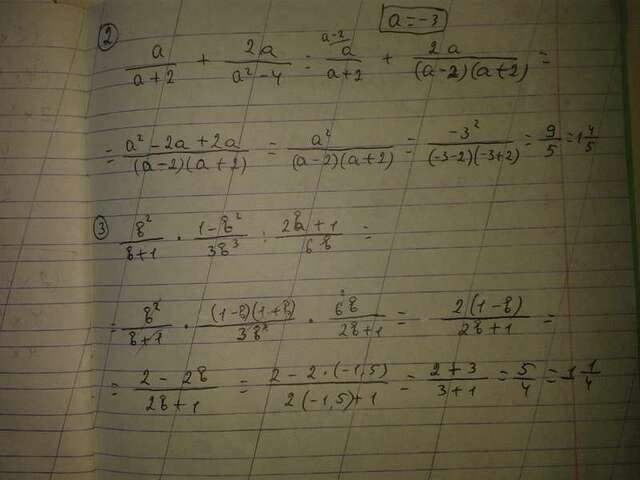 a = -3
② a/(a+2) + 2a/(a²-4) = a-2 a/(a+2) + 2a/((a-2)(a+2)) =
= (a²-2a+2a)/((a-2)(a+2)) = a²/((a-2)(a+2)) = -3²/((-3-2)(-3+2)) = 9/5 = 1 4/5
③ в²/(в+1) · (1-в²)/(3в³) : (2в+1)/(6в) =
= в²/(в+1) · ((1-в)(1+в))/(3в³) · 6в/(2в+1) = 2(1-в)/(2в+1) =
= (2-2в)/(2в+1) = (2-2·(-1,5))/(2(-1,5)+1) = (2+3)/(3+1) = 5/4 = 1 1/4